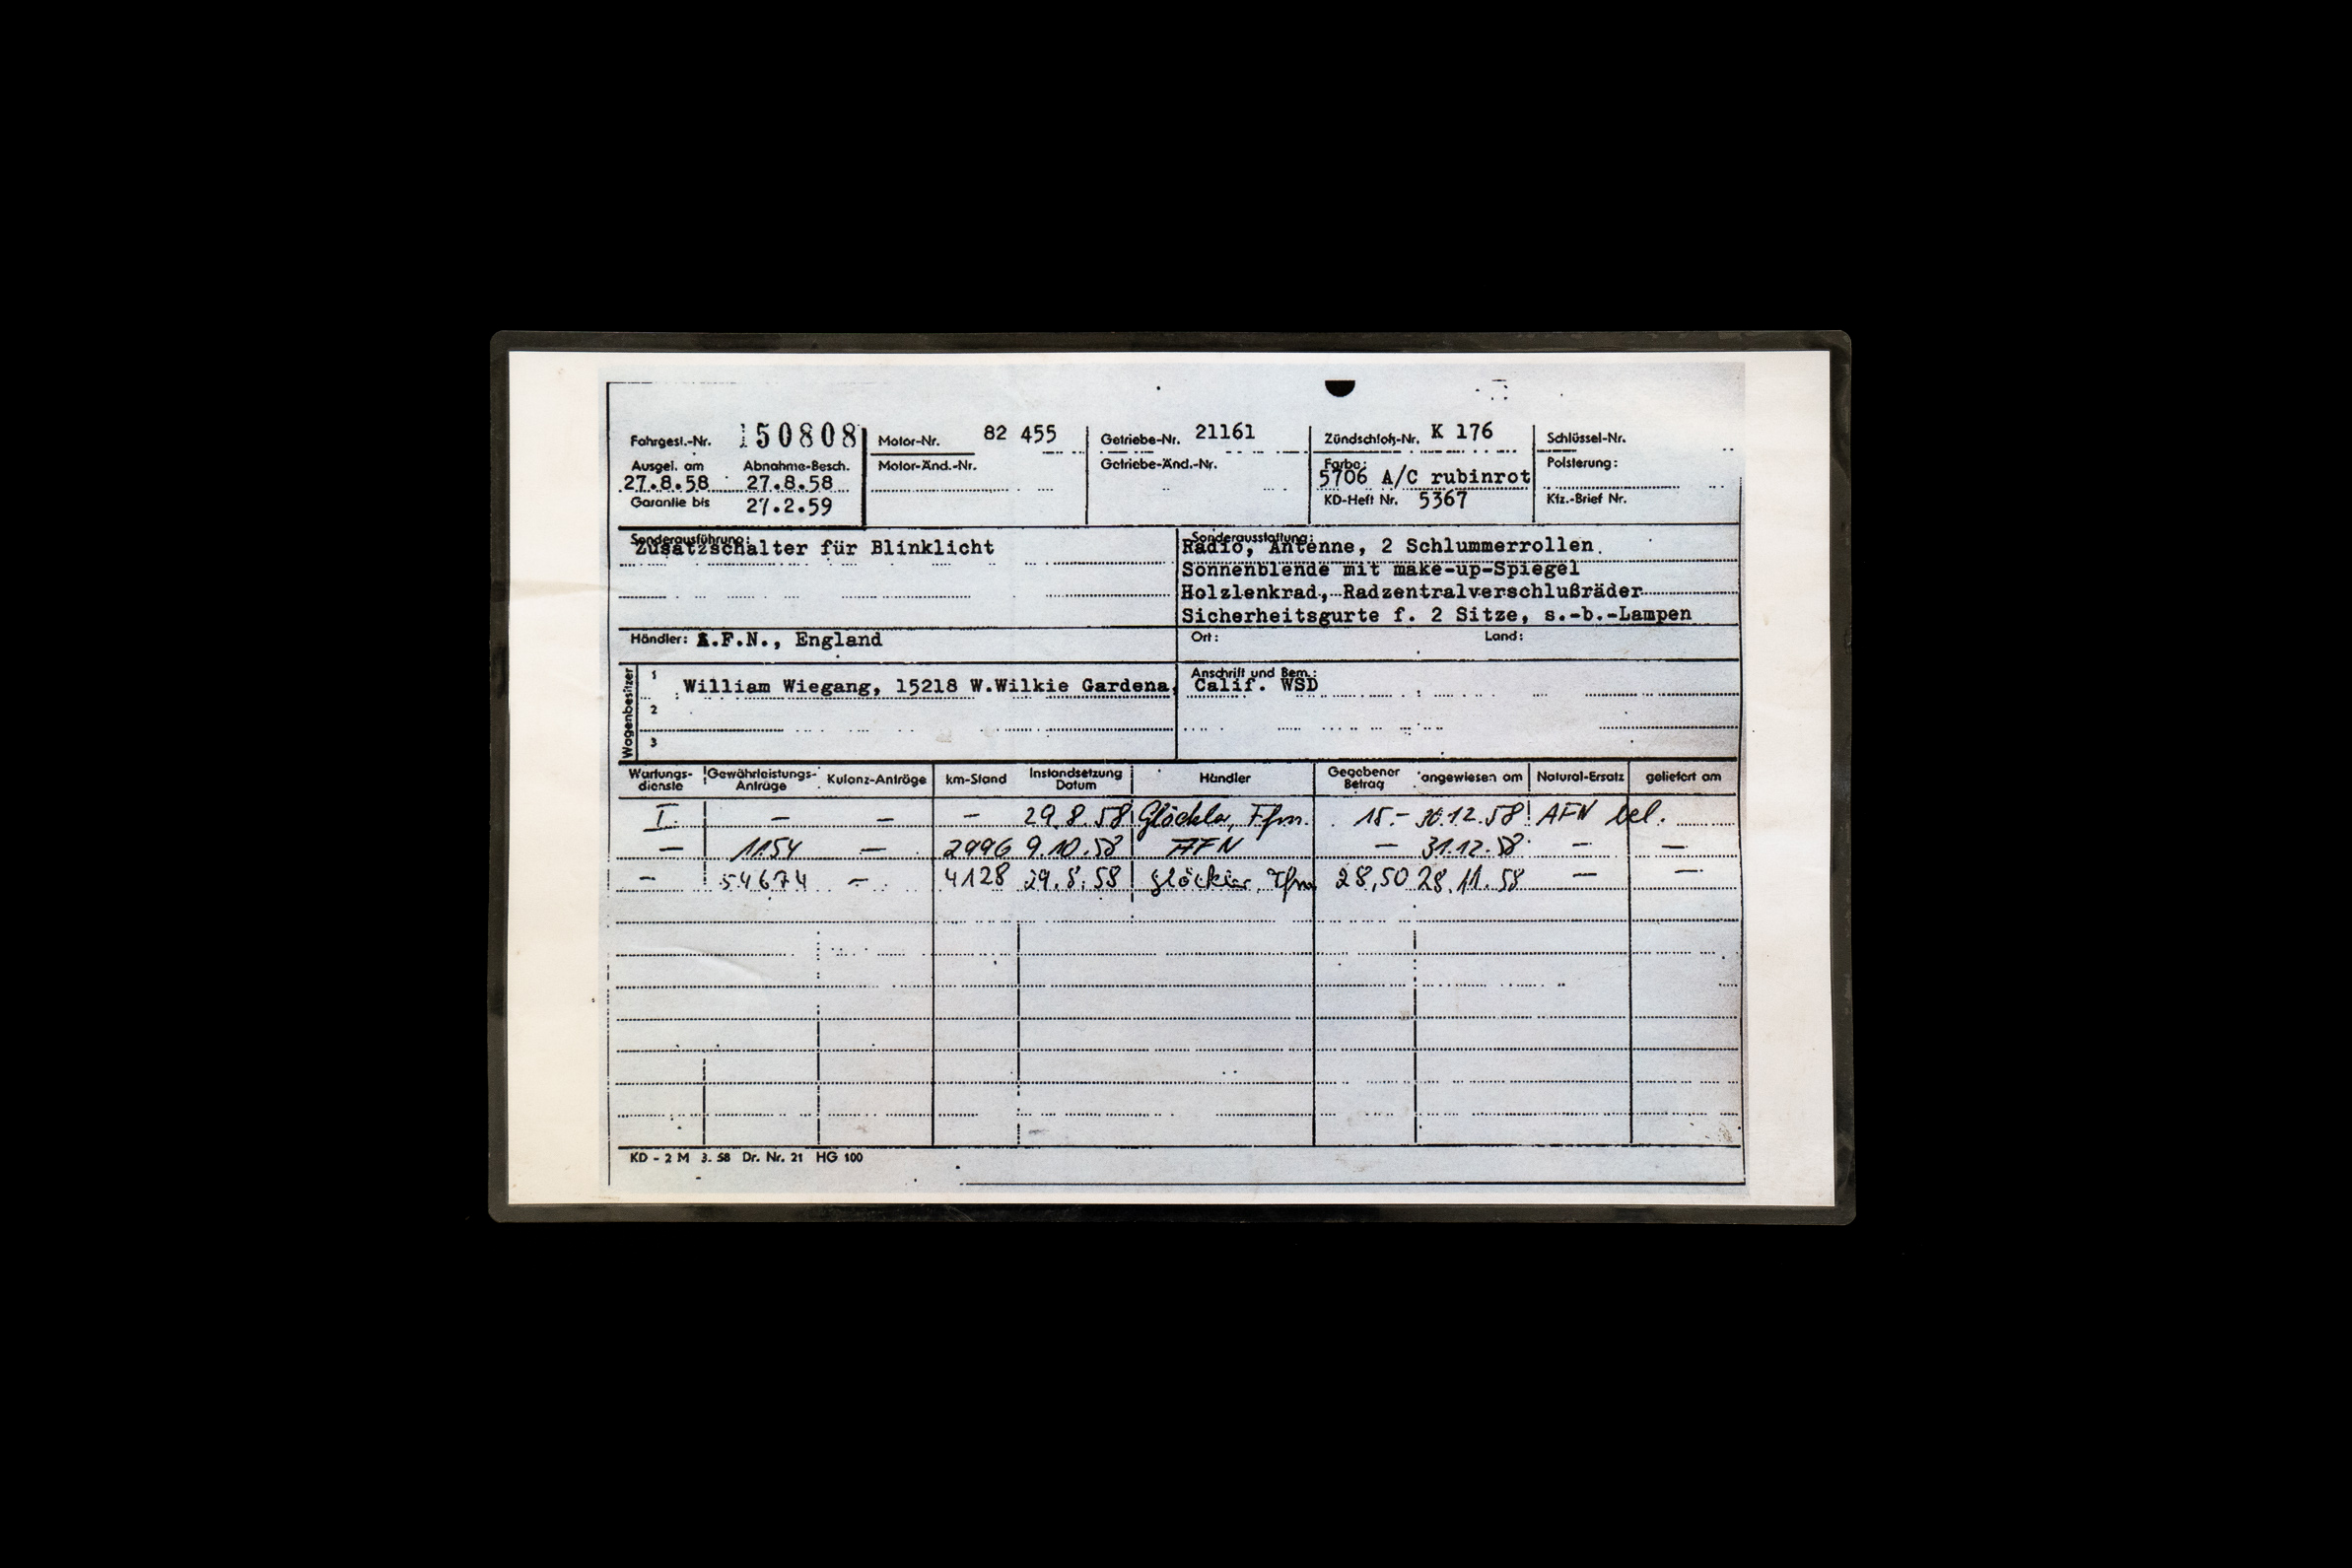 Fahrgest.-Nr. 150808 Motor-Nr. 82 455 Getriebe-Nr. 21161 Zündschloß-Nr. K 176 Schlüssel-Nr.
Ausgel. am Abnahme-Besch. Motor-Änd.-Nr. Getriebe-Änd.-Nr. Farbe: Polsterung:
27.8.58 27.8.58 5706 A/C rubinrot
Garantie bis 27.2.59 KD-Heft Nr. 5367 Kfz.-Brief Nr.
Sonderausführung: Sonderausstattung:
Zusatzschalter für Blinklicht Radio, Antenne, 2 Schlummerrollen
Sonnenblende mit make-up-Spiegel
Holzlenkrad, Radzentralverschlußräder
Sicherheitsgurte f. 2 Sitze, s.-b.-Lampen
Händler: A.F.N., England Ort: Land:
Wagenbesitzer
1 Anschrift und Bem.:
William Wiegang, 15218 W.Wilkie Gardena, Calif. WSD
2
3
Wartungs- Gewährleistungs- Kulanz-Anträge km-Stand Instandsetzung Händler Gegebener angewiesen am Natural-Ersatz geliefert am
dienste Anträge Datum Betrag
I. — — — 29.8.58 Glöckler, Ffm. 15.- 30.12.58 AFN bel.
— 1154 — 2996 9.10.58 AFN — 31.12.58 — —
— 54674 — 4128 29.8.58 Glöckler, Ffm 28,50 28.11.58 — —
KD - 2 M 3. 58 Dr. Nr. 21 HG 100